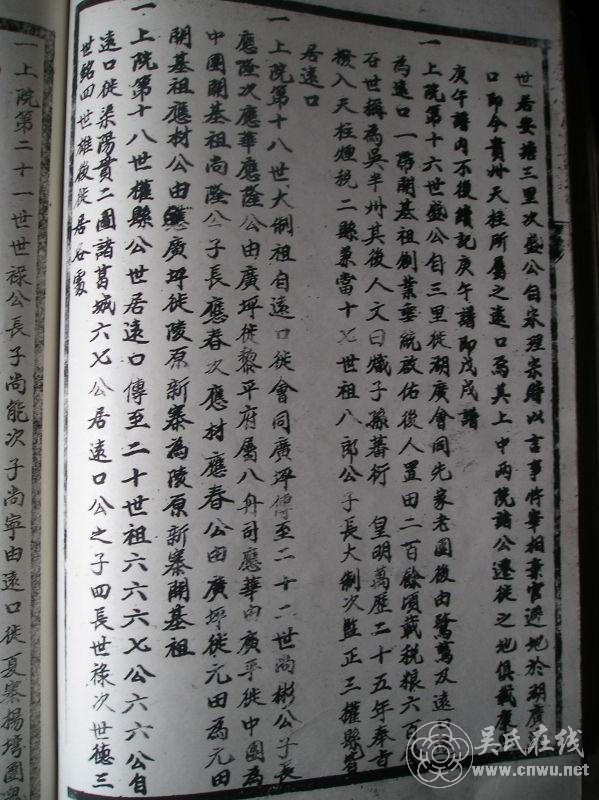 世居安塘三里次盛公自宋理宗時以言事忤宰相棄官避地於湖廣
口即今貴州天柱所屬之遠口為其上中兩院諸公遷徙之地俱載庚
庚午譜内不復續記庚午譜即戊戌譜
一上院第十六世盛公自三里徙湖廣會同先家老團後由鷺鷥及遠
為遠口一帶開基祖創業垂統啟佑後人置田二百餘頃載税糧六百
石世稱為吳半州其後人文日熾子孫蕃衍 皇明萬歷二十五年奉旨
撥入天柱煙税二縣兼當十七世祖八郎公子長大制次監正三權縣皆
居遠口
一上院第十八世大制祖自遠口徙會同廣坪傳至二十二世尚彬公子長
應隆次應華應隆公由廣坪徙黎平府屬八舟司應華由廣平徙中團為
中團開基祖尚隆公子長應春次應材應春公由廣坪徙元田為元田
開基祖應材公由廣坪徙陵原新寨為陵原新寨開基祖
一上院第十八世權縣公世居遠口傳至二十世祖六六六七公六六公自
遠口徙渠陽貫二圖諸葛城六七公居遠口公之子四長世祿次世德三
世銘四世雄後徙居各處
一上院第二十一世世祿公長子尚能次子尚寧由遠口徙夏寨楊塆圖
吳氏在线
www.cnwu.net